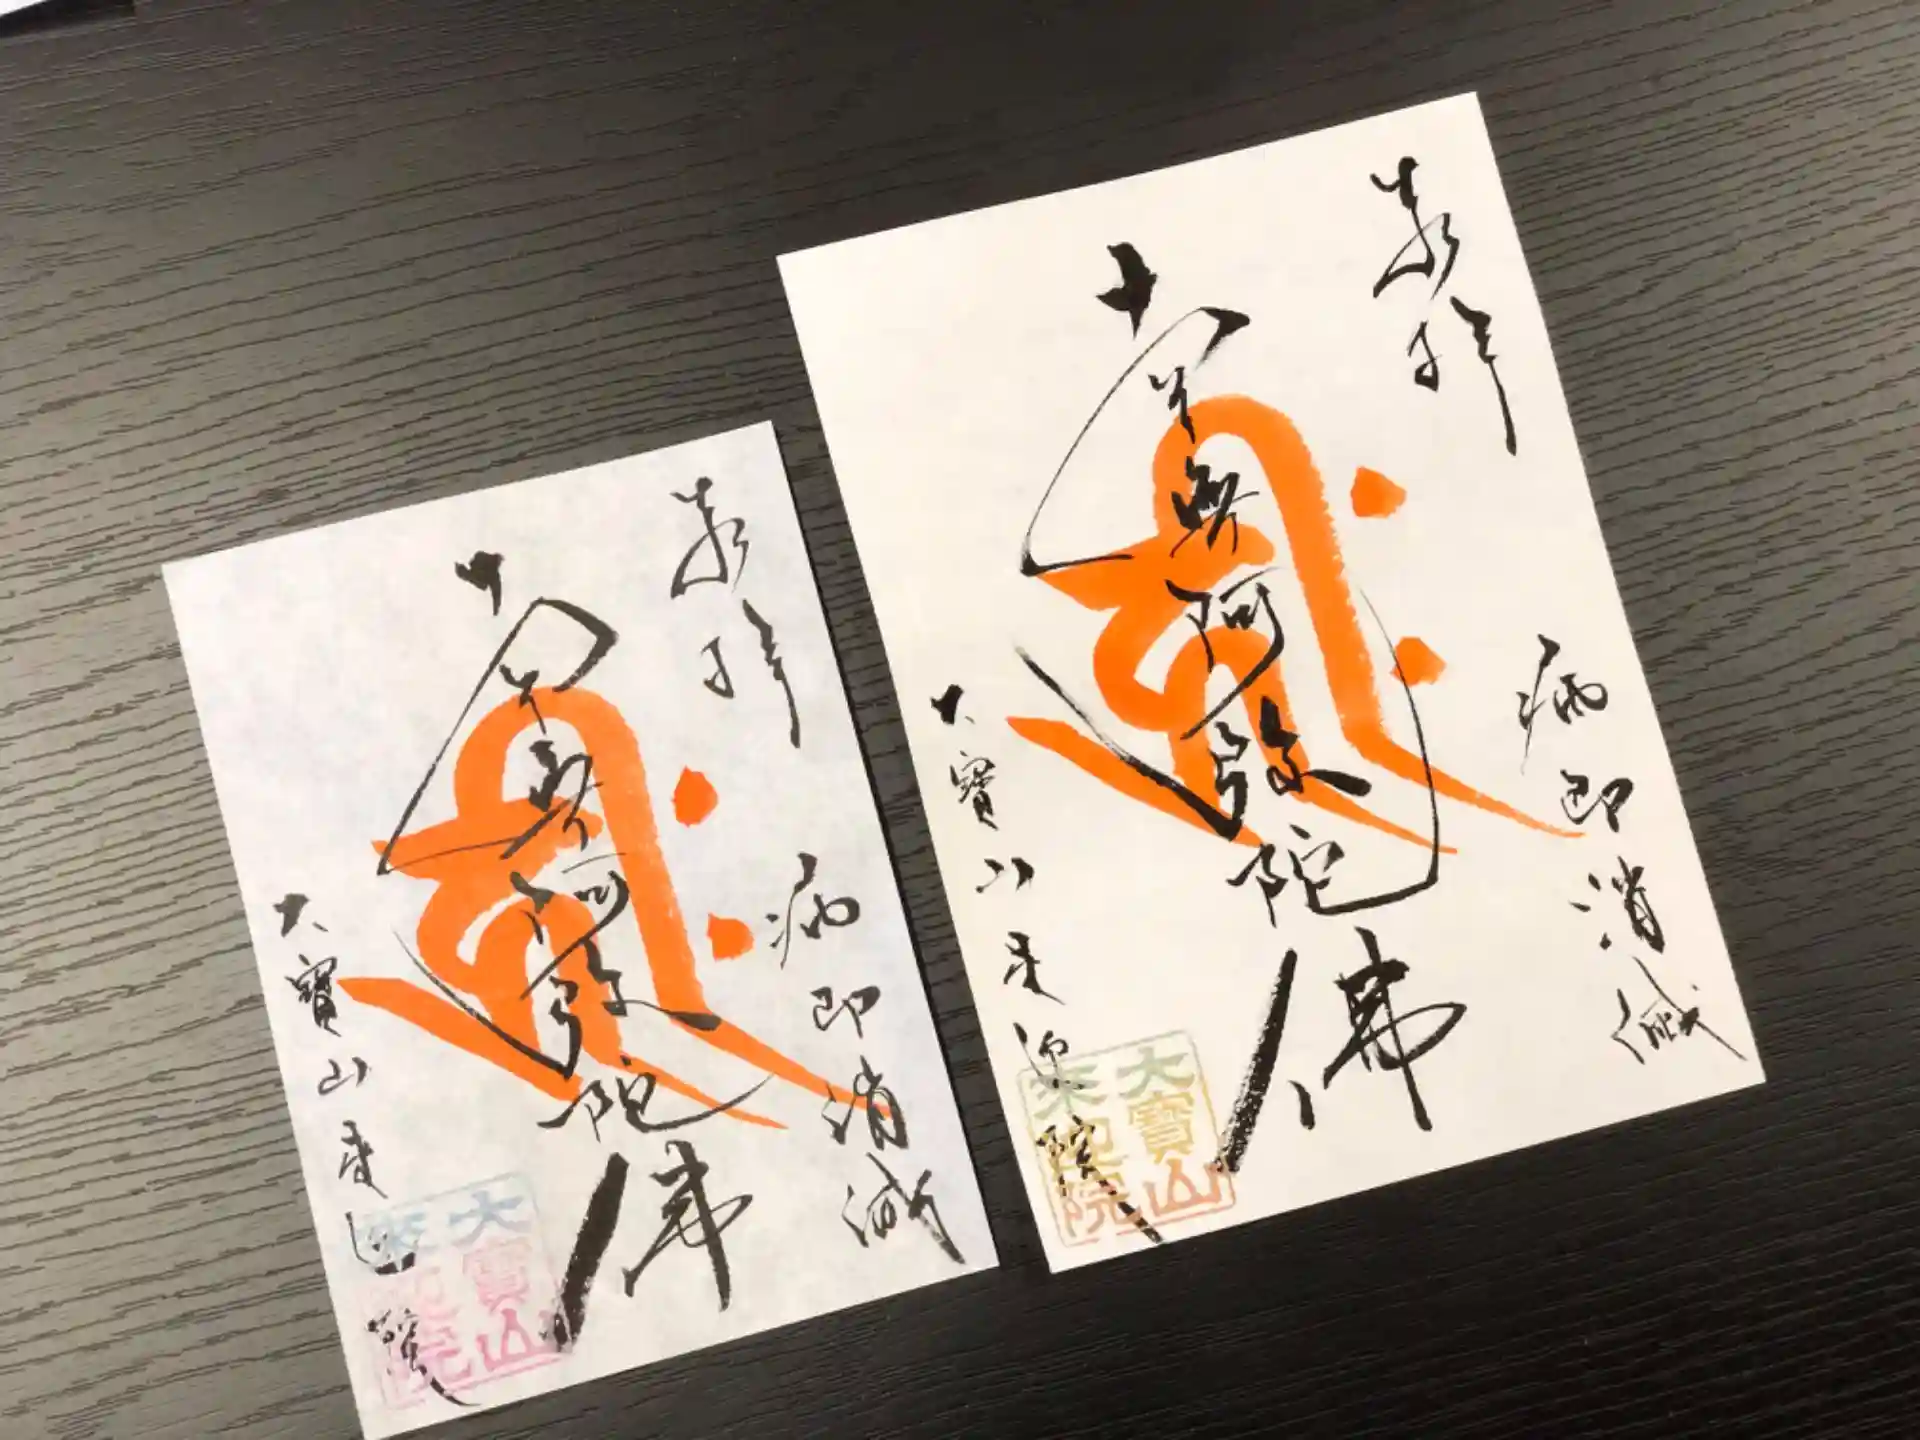 奉拝
病即消滅
南無阿弥陀佛
大寶山来迎院
大寶山
来迎院
奉拝
病即消滅
南無阿弥陀佛
大寶山来迎院
大寶山
来迎院